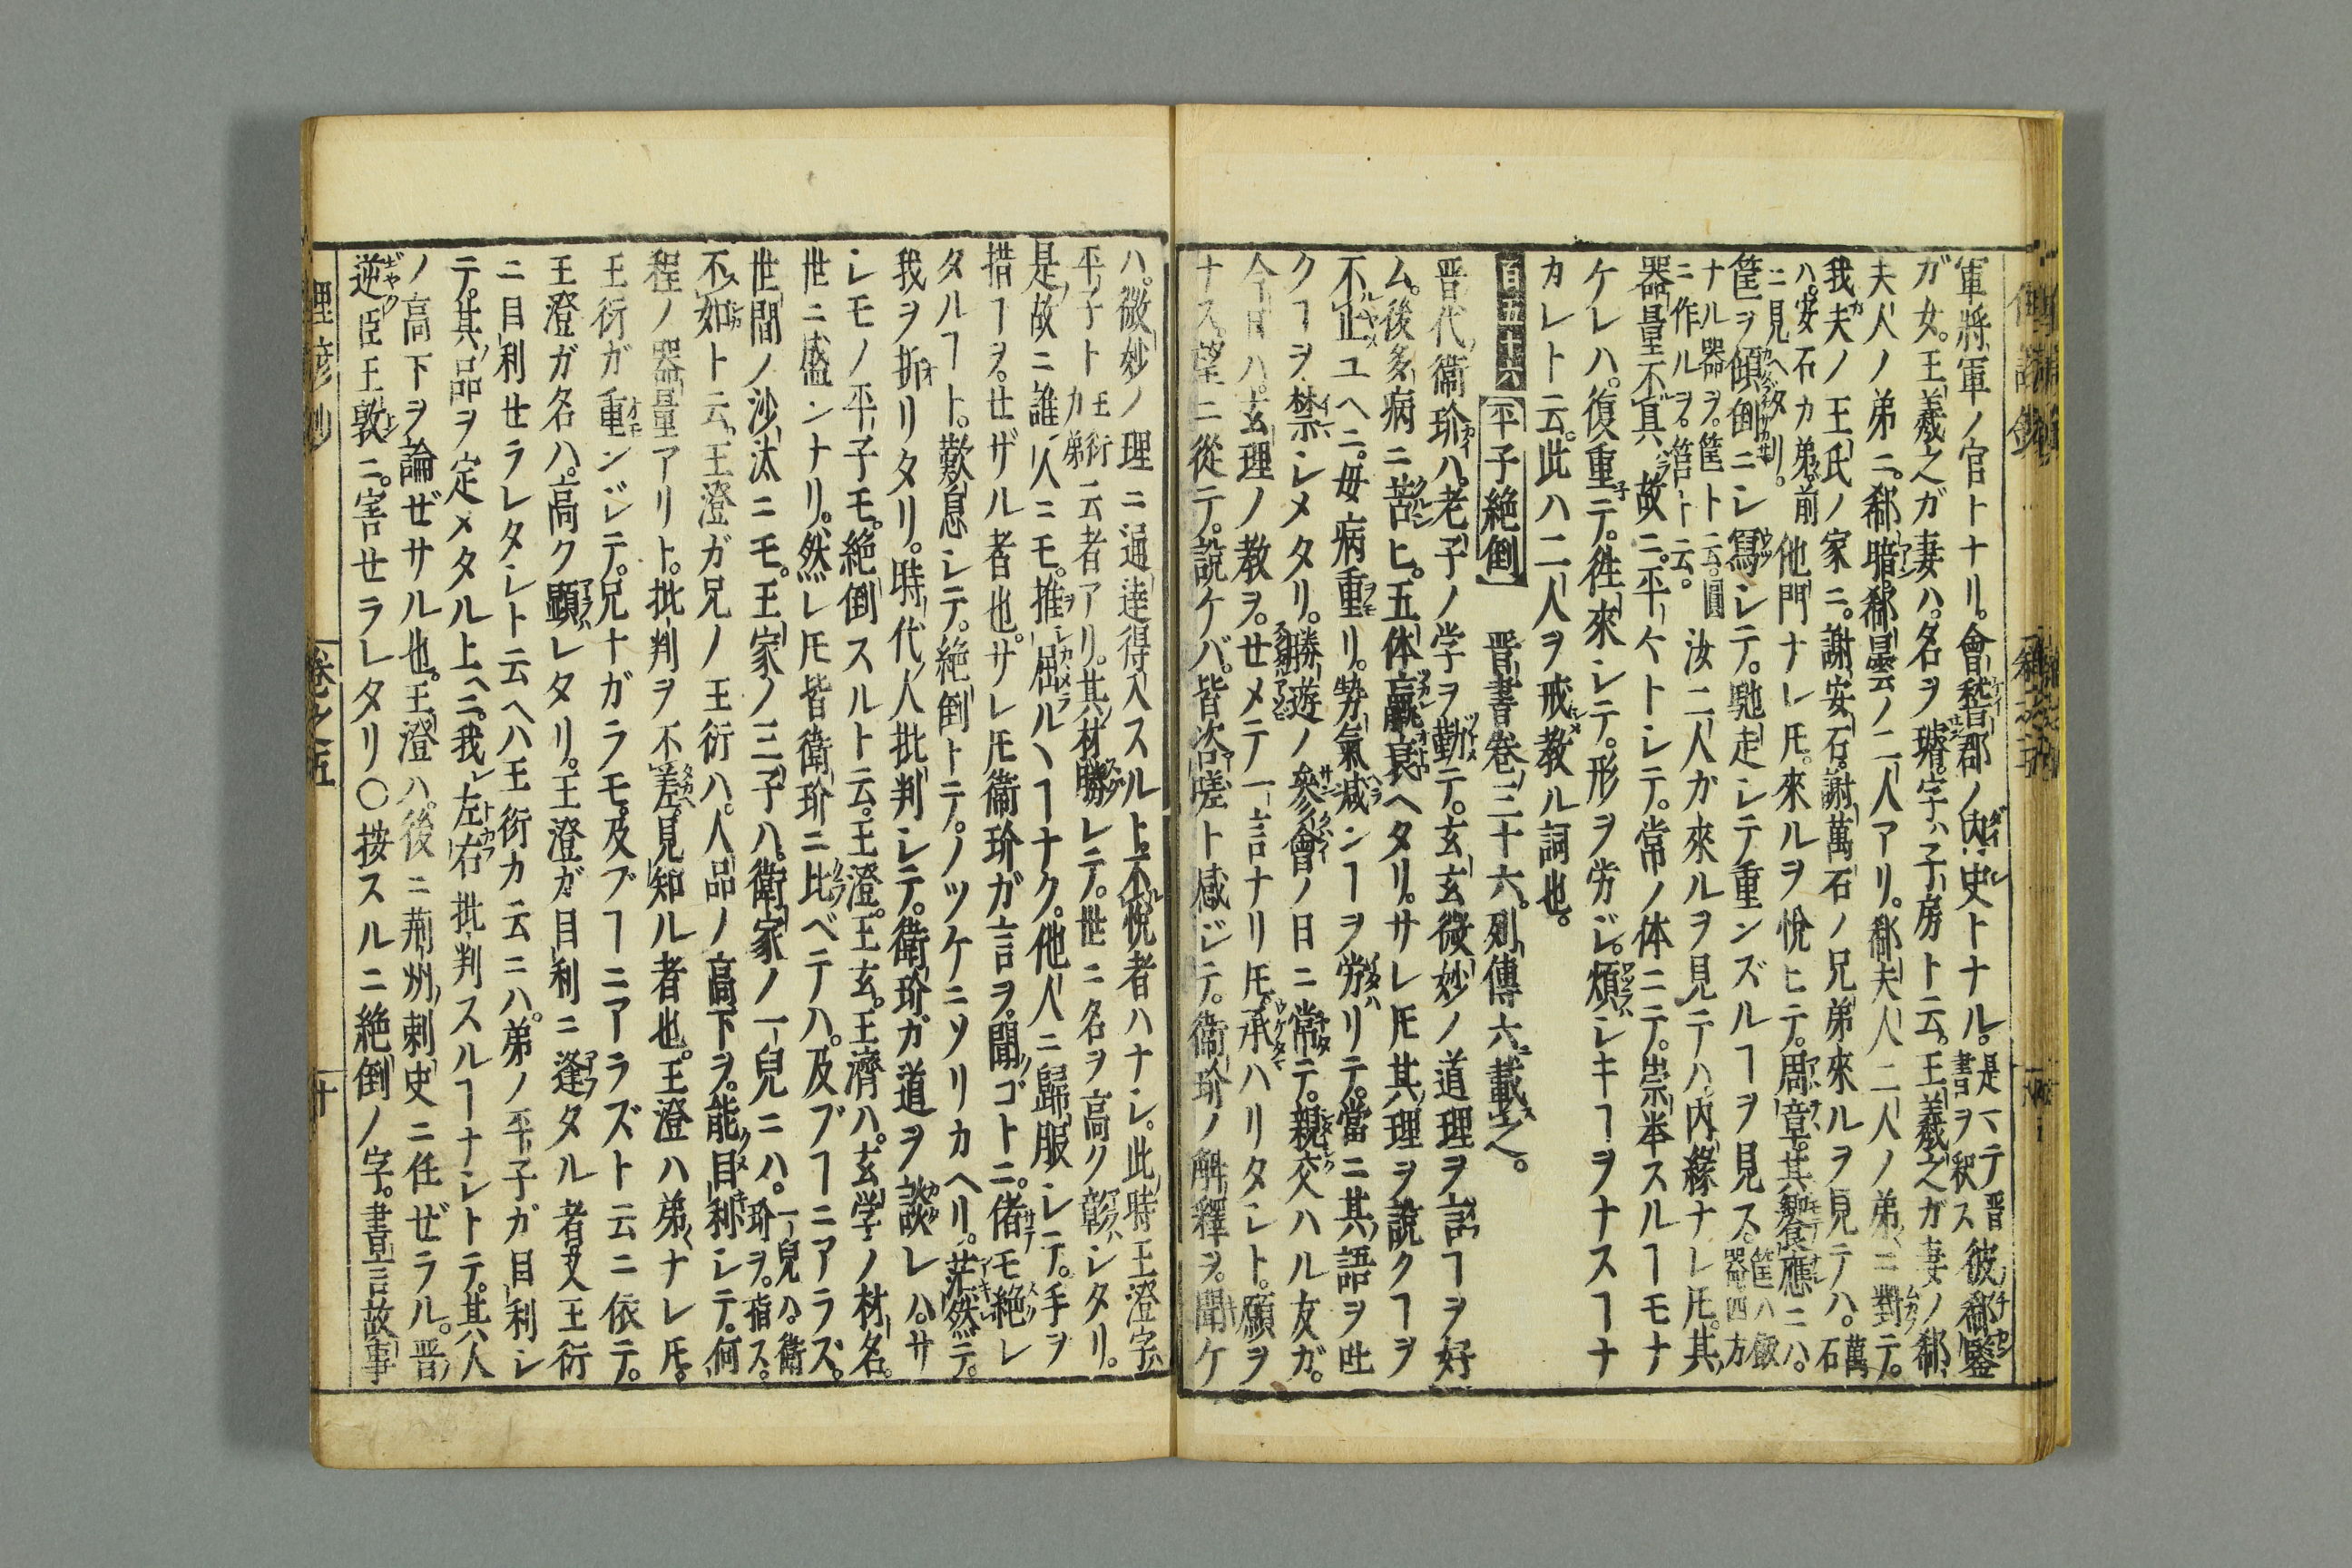 軍將軍ノ官トナリ。會稽郡ノ内史トナル。是ハ晋書ヲ以テ釈ス彼郗鑒
ガ女。王羲之ガ妻ハ。名ヲ璿。字ハ子房ト云。王羲之ガ妻ノ郗
夫人ノ弟ニ。郗愔。郗曇ノ二人アリ。郗夫人二人ノ弟ニ對テ。
我夫ノ王氏ノ家ニ。謝安石。謝萬石ノ兄弟來ルヲ見テハ。萬石
ハ。安石カ弟。前ニ見ヘタリ。他門ナレ𪜈。來ルヲ悅ヒテ。周章。其饗應ニハ。
筐ヲ傾倒ニシ寫シテ。馳走シテ重ンズルヿヲ見ス。筐ハ飯器四方
ナル器ヲ。筐ト云。圓ニ作ルヲ。筥ト云。汝二人ガ來ルヲ見テハ。内緣ナレ𪜈。其
器量不眞。故ニ。平ヶトシテ。常ノ体ニテ。崇举スルヿモナ
ケレハ。復重テ。徃來シテ。形ヲ労ジ。煩シキヿヲナスヿナ
カレト云。此ハ二人ヲ戒教ル詞也。
百五十六 平子絶倒 晋書卷三十六。列傳六載之。
晋代衞玠ハ。老子ノ学ヲ勤テ。玄玄微妙ノ道理ヲ言ヿヲ好
ム。後多病ニ苦ヒ。五体羸衰ヘタリ。サレ𪜈其理ヲ說クヿヲ
不止ユヘニ。母病重リ。勢氣减ンヿヲ労リテ。當ニ其語ヲ出
クヿヲ禁シメタリ。勝遊ノ參會ノ日ニ常テ。親交ハル友ガ。
今日ハ。玄理ノ教ヲ。セメテ一言ナリ𪜈承ハリタシト。願ヲ
ナス。望ニ從テ。說ケバ。皆咨嗟ト感ジテ。衞玠ノ解釋ヲ。聞ケ
ハ。微妙ノ理ニ通達得入スルト。不悅者ハナシ。此時王澄字ハ
平子ト王衍カ弟云者アリ。其材勝レテ。世ニ名ヲ高ク彰シタリ。
是故ニ誰人ニモ。推屈ルヽヿナク。他人ニ歸服シテ。手ヲ
措ヿヲ。セザル者也。サレ𪜈衞玠ガ言ヲ。聞ゴトニ。偖モ絶レ
タルヿト。歎息シテ。絶倒トテ。ノツケニソリカヘリ。茫然テ。
我ヲ折リタリ。時代人批判シテ。衛玠ガ道ヲ談レハ。サ
レモノ平子モ。絶倒スルト云。王澄。王玄。王濟ハ。玄学ノ材名。
世ニ盛ンナリ。然レ𪜈皆衛玠ニ比ベテハ。及ブヿニアラズ。
世間ノ沙汰ニモ。王家ノ三子ハ。衛家ノ一兒ニハ。一兒ハ。衛玠ヲ。指ス。
不如ト云。王澄ガ兄ノ王衍ハ。人品ノ高下ヲ。能目利シテ。何
程ノ器量アリト。批判ヲ不差。見知ル者也。王澄ハ弟ナレ𪜈。
王衍ガ重ンジテ。兄ナガラモ。及ブヿニアラズト云ニ依テ。
王澄ガ名ハ。高ク顯レタリ。王澄ガ目利ニ逢タル者又王衍
ニ目利セラレタシト云ヘハ王衍カ云ニハ。弟ノ平子ガ目利シ
テ。其品ヲ定メタル上ヘニ。我レ左右批判スルヿナシトテ。其人
ノ高下ヲ論ゼサル也。王澄ハ。後ニ荊州刺史ニ任ゼラル。晋ノ
逆臣王敦ニ。害セラレタリ〇按スルニ絶倒ノ字。書言故事
理諺抄 卷之五 十